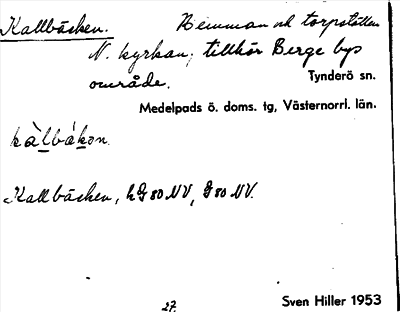 Kallbäcken. Hemman och torpställen
N. kyrkan; tillhör Berge bys
område. Tynderö sn.
Medelpads ö. doms. tg, Västernorrl. län.
kàlbákon
Kallbäcken, hG 80 NV, G 80 NV.
27. Sven Hiller 1953